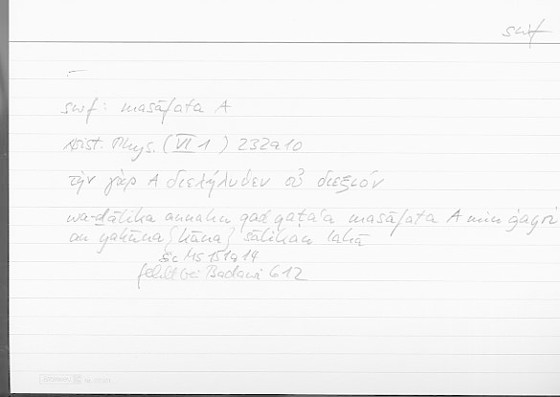 swf
swf: masāfata A
Arist. Phys. (VI 1) 232a10
τὴν γὰρ A διελήλυθεν οὐ διεξιόν
wa-ḏālika annahu qad qaṭaʿa masāfata A min ġayri
an yakūna {kāna} sālikan lahā
So MS 151a14
fehlt bei Badawi 612